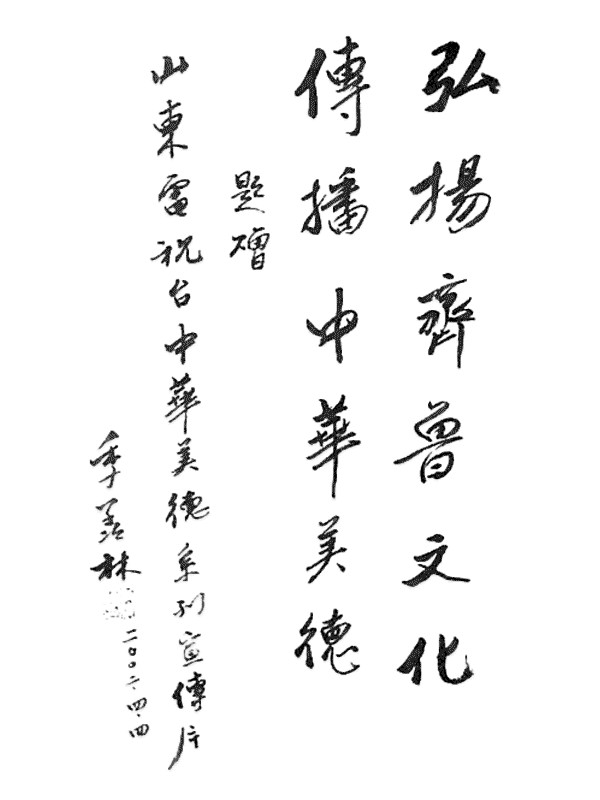 弘揚齊魯文化
傳播中華美德
題贈
山東電視台中華美德系列宣傳片
季羨林
二〇〇二·四·四